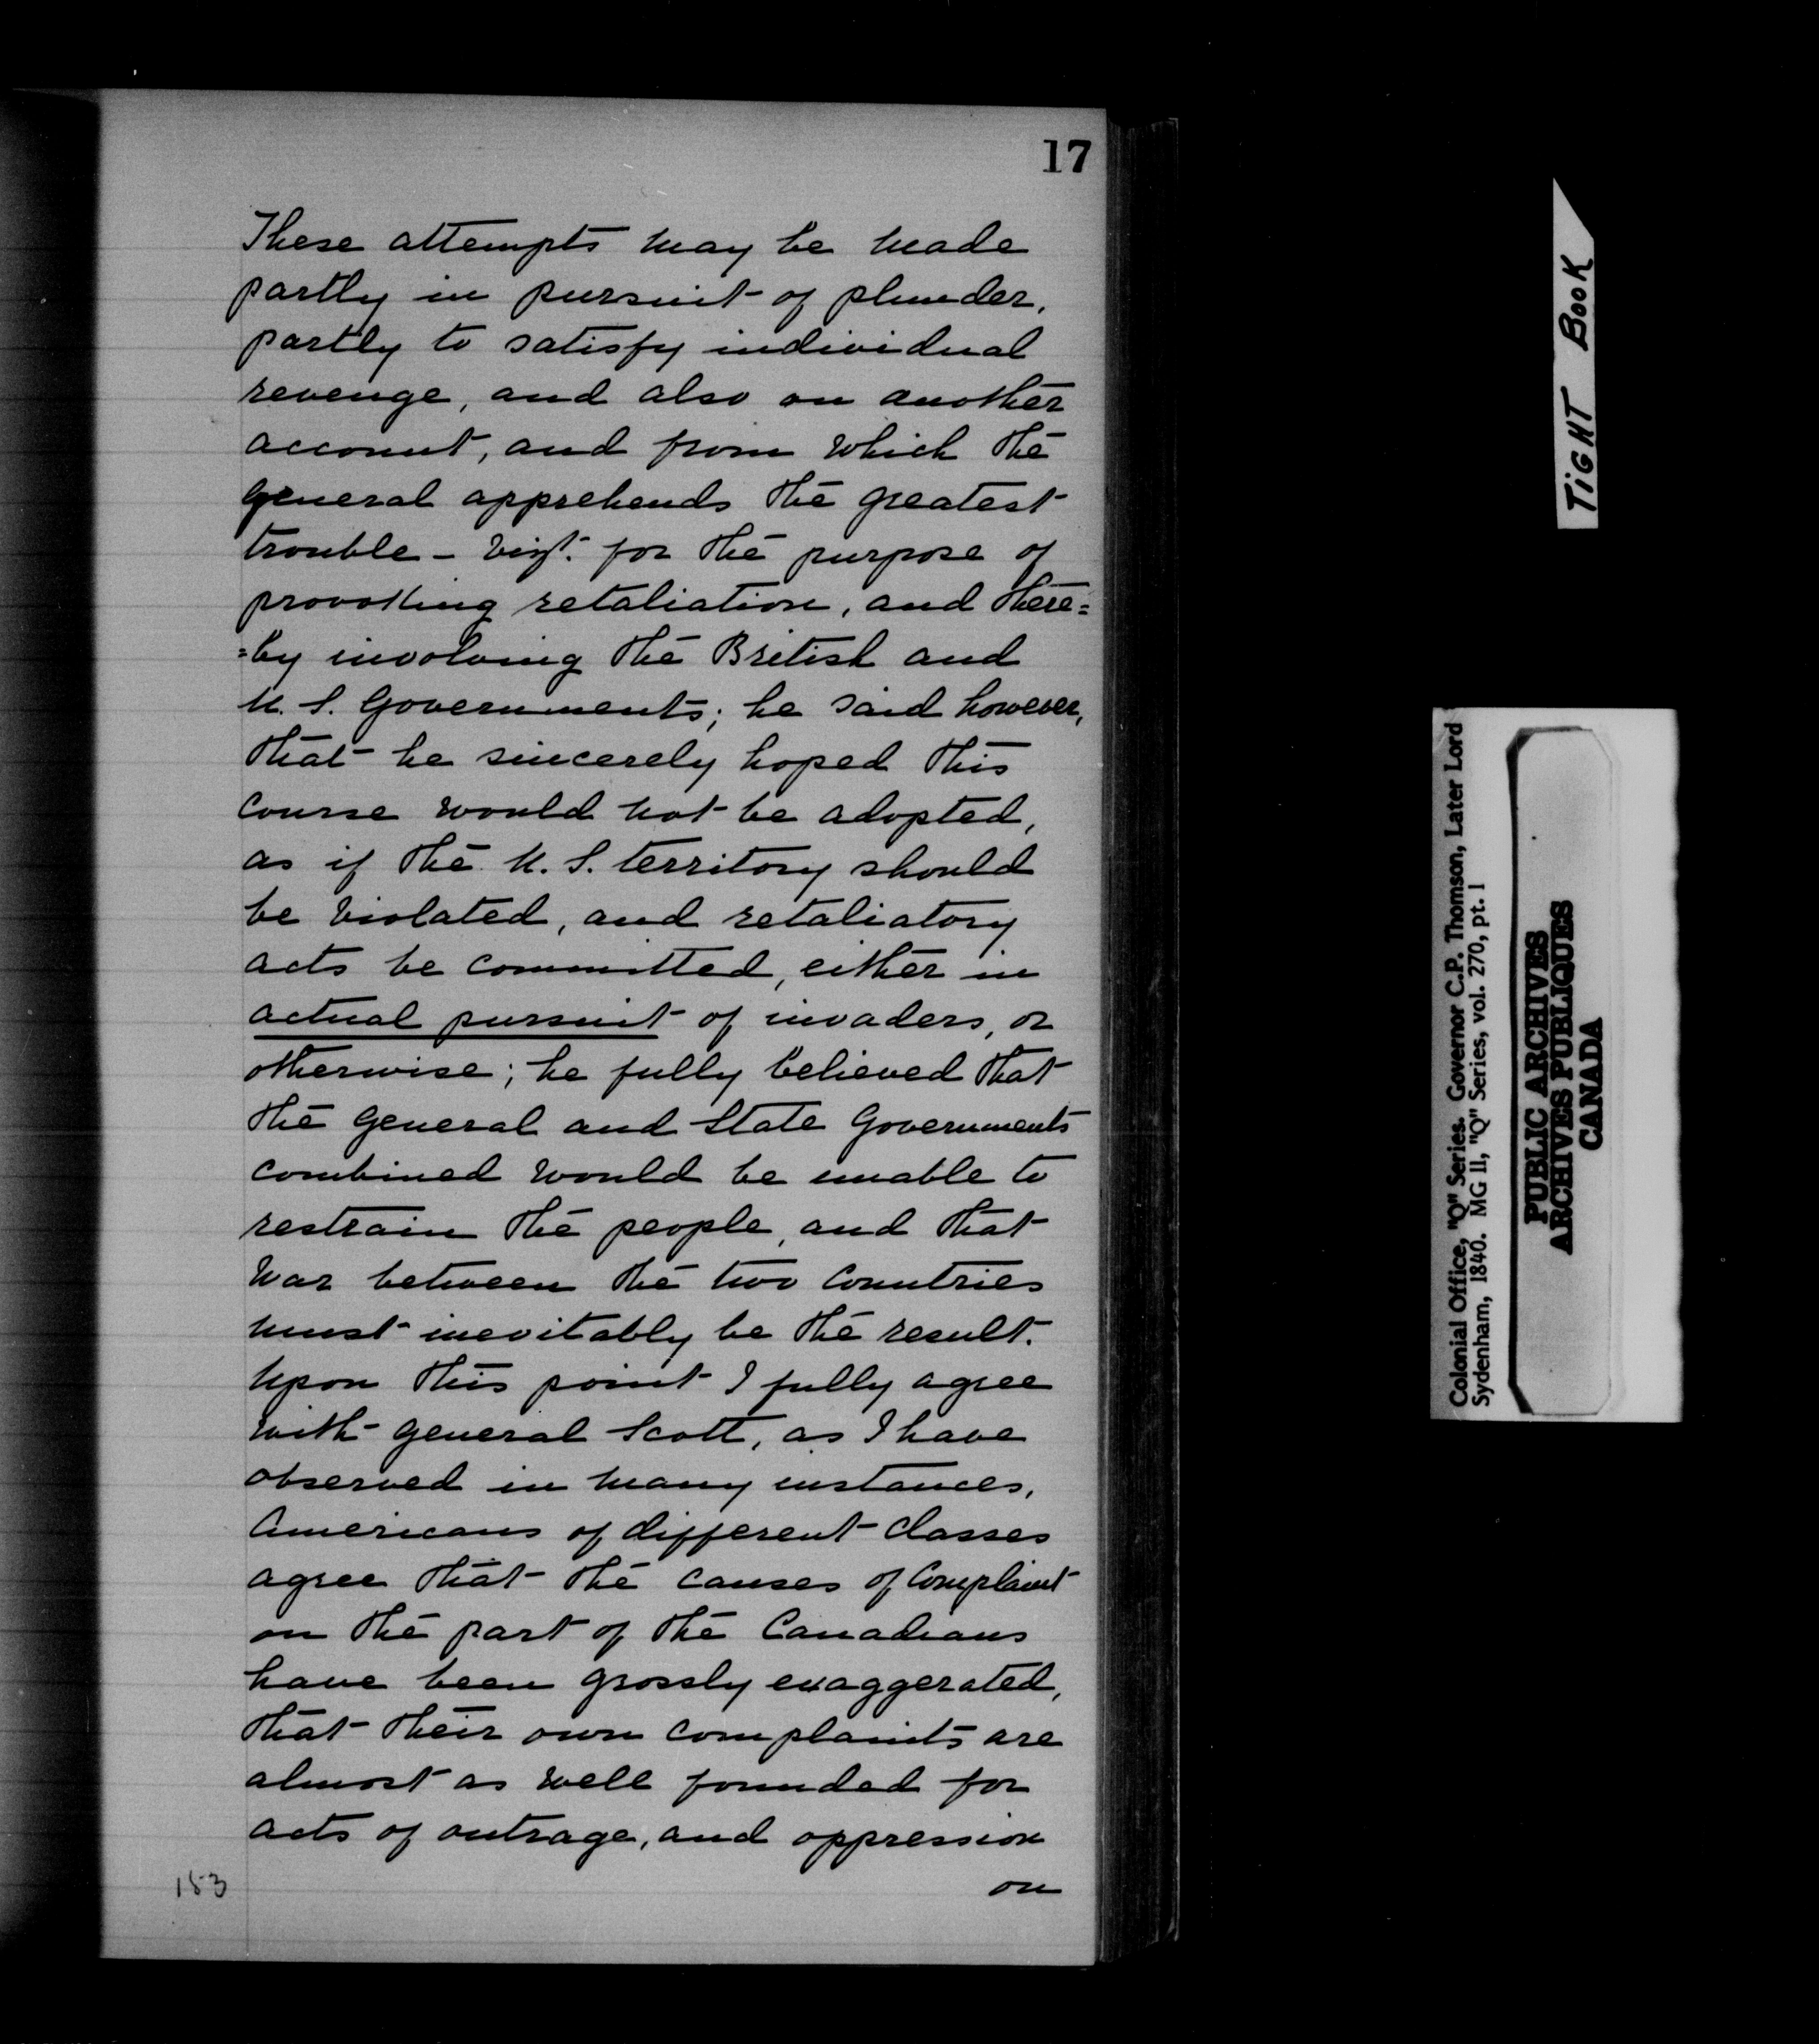 17
These attempts may be made
partly in pursuit of plunder,
partly to satisfy individual
revenge, and also on another
account, and from which the
General apprehends the greatest
trouble - vizt. for the purpose of
provoking retaliation, and there=
=by involving the British and
U. S. Governments; he said however,
that he sincerely hoped this
course would not be adopted,
as if the U. S. territory should
be violated, and retaliatory
acts be committed, either in
actual pursuit of invaders, or
otherwise; he fully believed that
the General and State Governments
combined would be unable to
restrain the people, and that
War between the two Countries
must inevitably be the result.
Upon this point I fully agree
with General Scott, as I have
observed in many instances,
Americans of different classes
agree that the causes of Complaint
on the part of the Canadians
have been grossly exaggerated,
that their own complaints are
almost as well founded for
acts of outrage, and oppression
on
183
TIGHT BOOK
Colonial Office, "Q" Series. Governor C.P. Thomson, Later Lord
Sydenham, 1840. MG 11, "Q" Series, vol. 270, pt. 1
PUBLIC ARCHIVES
ARCHIVES PUBLIQUES
CANADA